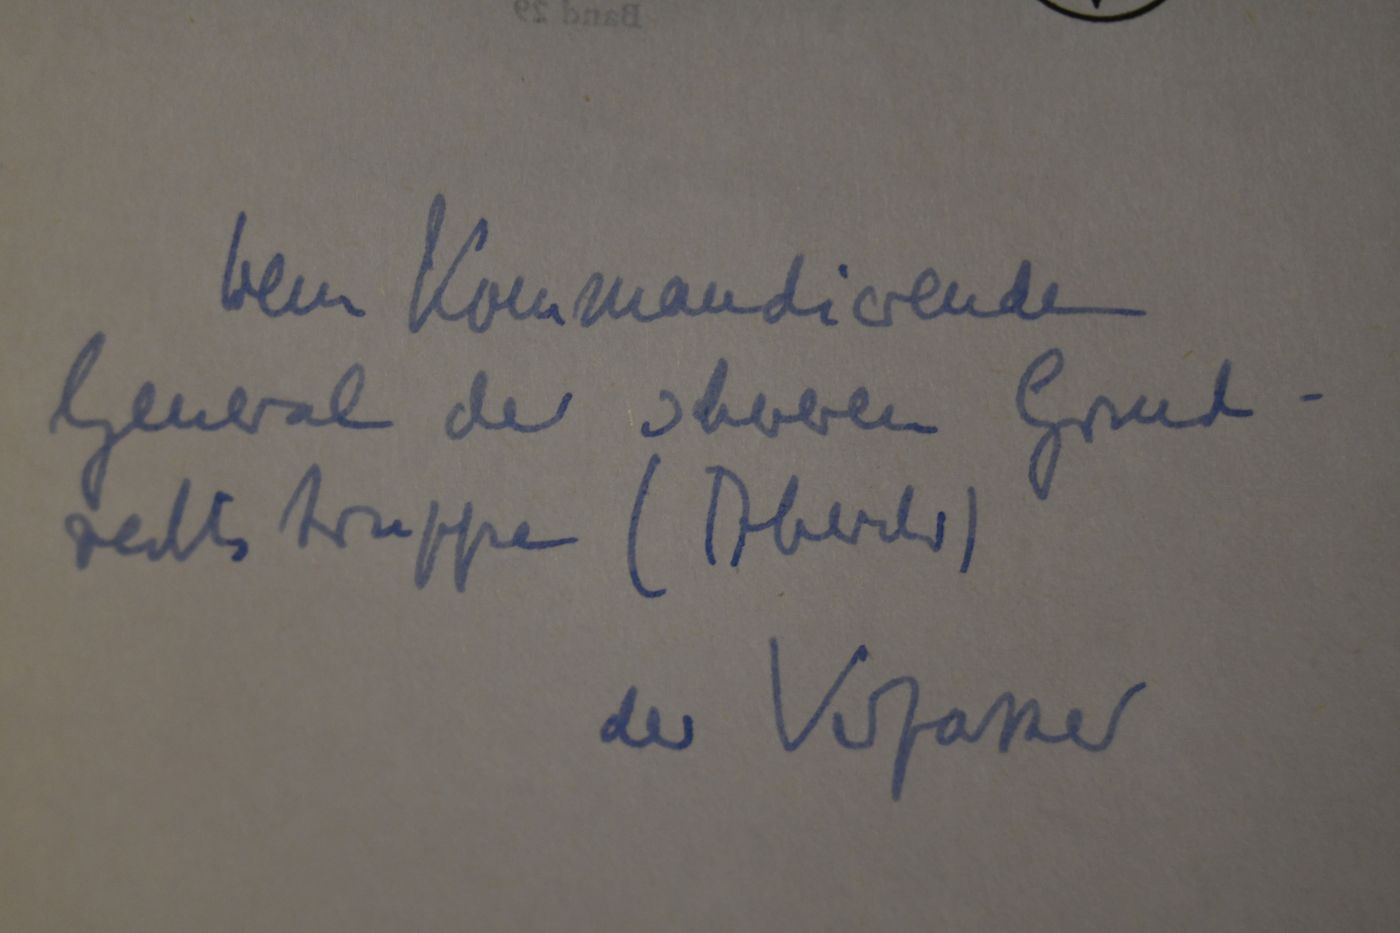 Band 29
dem Kommandierenden
General der schweren Grund-
rechtstruppe
der Verfasser